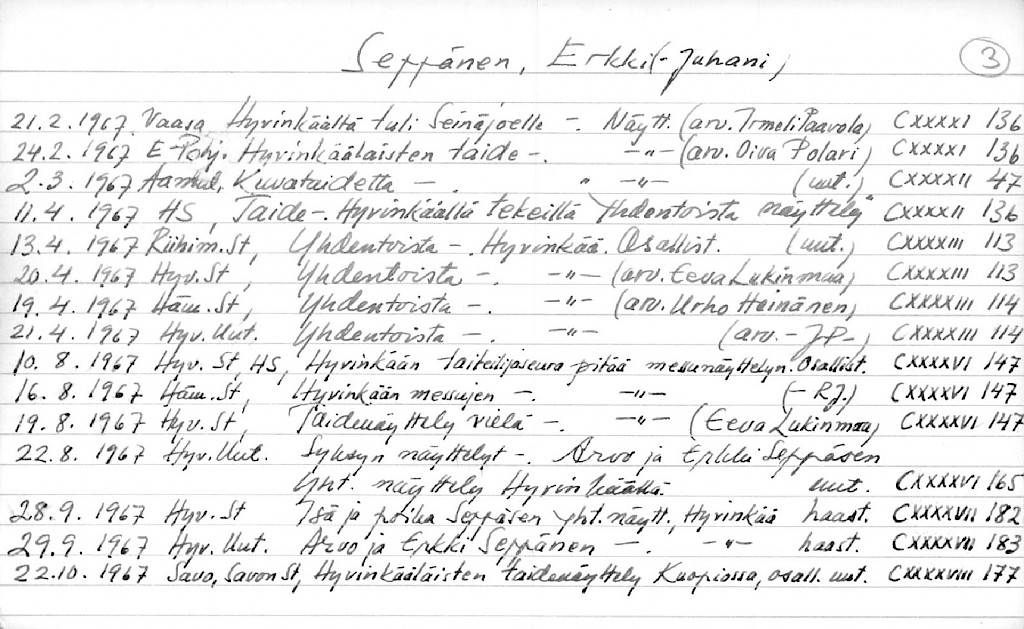 Seppänen, Erkki (-Juhani) 3
21.2.1967 Vaasa, Hyvinkäältä tuli Seinäjoelle -. Näytt. (arv. Irmeli Paavola) CXXXXI 136
24.2.1967 E-Pohj. Hyvinkääläisten taide -. -"- (arv. Oiva Polari) CXXXXI 136
2.3.1967 Aamul, Kuvataidetta -. " -"- (uut.) CXXXXII 47
11.4.1967 HS, Taide-. Hyvinkäällä tekeillä "Yhdentoista näyttely" CXXXXII 136
13.4.1967 Riihim.St, Yhdentoista -. Hyvinkää. Osallist. (uut.) CXXXXIII 113
20.4.1967 Hyv.St, Yhdentoista -. -"- (arv. Eeva Lukinmaa) CXXXXIII 113
19.4.1967 Häm.St, Yhdentoista -. -"- (arv. Urho Heinänen) CXXXXIII 114
21.4.1967 Hyv.Uut. Yhdentoista -. -"- (arv. -JP-) CXXXXIII 114
10.8.1967 Hyv.St, HS, Hyvinkään taiteilijaseura pitää messunäyttelyn. Osallist. CXXXXVI 147
16.8.1967 Häm.St, Hyvinkään messujen -. -"- (-RJ.) CXXXXVI 147
19.8.1967 Hyv.St, Taidenäyttely vielä -. -"- (Eeva Lukinmaa) CXXXXVI 147
22.8.1967 Hyv.Uut. Syksyn näyttelyt -. Arvo ja Erkki Seppäsen
yht. näyttely Hyvinkäällä. uut. CXXXXVI 165
28.9.1967 Hyv.St Isä ja poika Seppäsen yht. näytt., Hyvinkää haast. CXXXXVII 182
29.9.1967 Hyv.Uut. Arvo ja Erkki Seppänen -. -"- haast. CXXXXVII 183
22.10.1967 Savo, Savon St, Hyvinkääläisten taidenäyttely Kuopiossa, osall. uut. CXXXXVIII 177